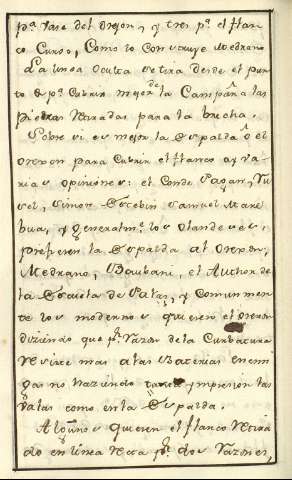 pª. vase del Orejon, y tres pª. el flan
co Curvo, Como lo Construye Medrano
La linea Oculta se tira desde el pun
to pª. Cubrir mejor de la Campaña las
piezas retiradas para la brecha.
Sobre si es mejor la Espalda, ò el
Orejon para Cubrir el flanco ay va
rias opiniones: el Conde Pagan,
Simon Estebin Samuel Maro
bua, y generalmᵗᵉ. los Olandeses,
prefieren la Espalda al Orejon;
Medrano, Bauban, el Author de
la Escuela de Palas, y Comunmen
te los modernos quieren el Orejon
diziendo que pʳ. razon de la Curbatura
resiste mas a las Baterias enemi
gas no haziendo tanta ympresion las
valas como en la Espalda.
Algunos quieren el flanco retira
do en linea recta pʳ. dos razones,